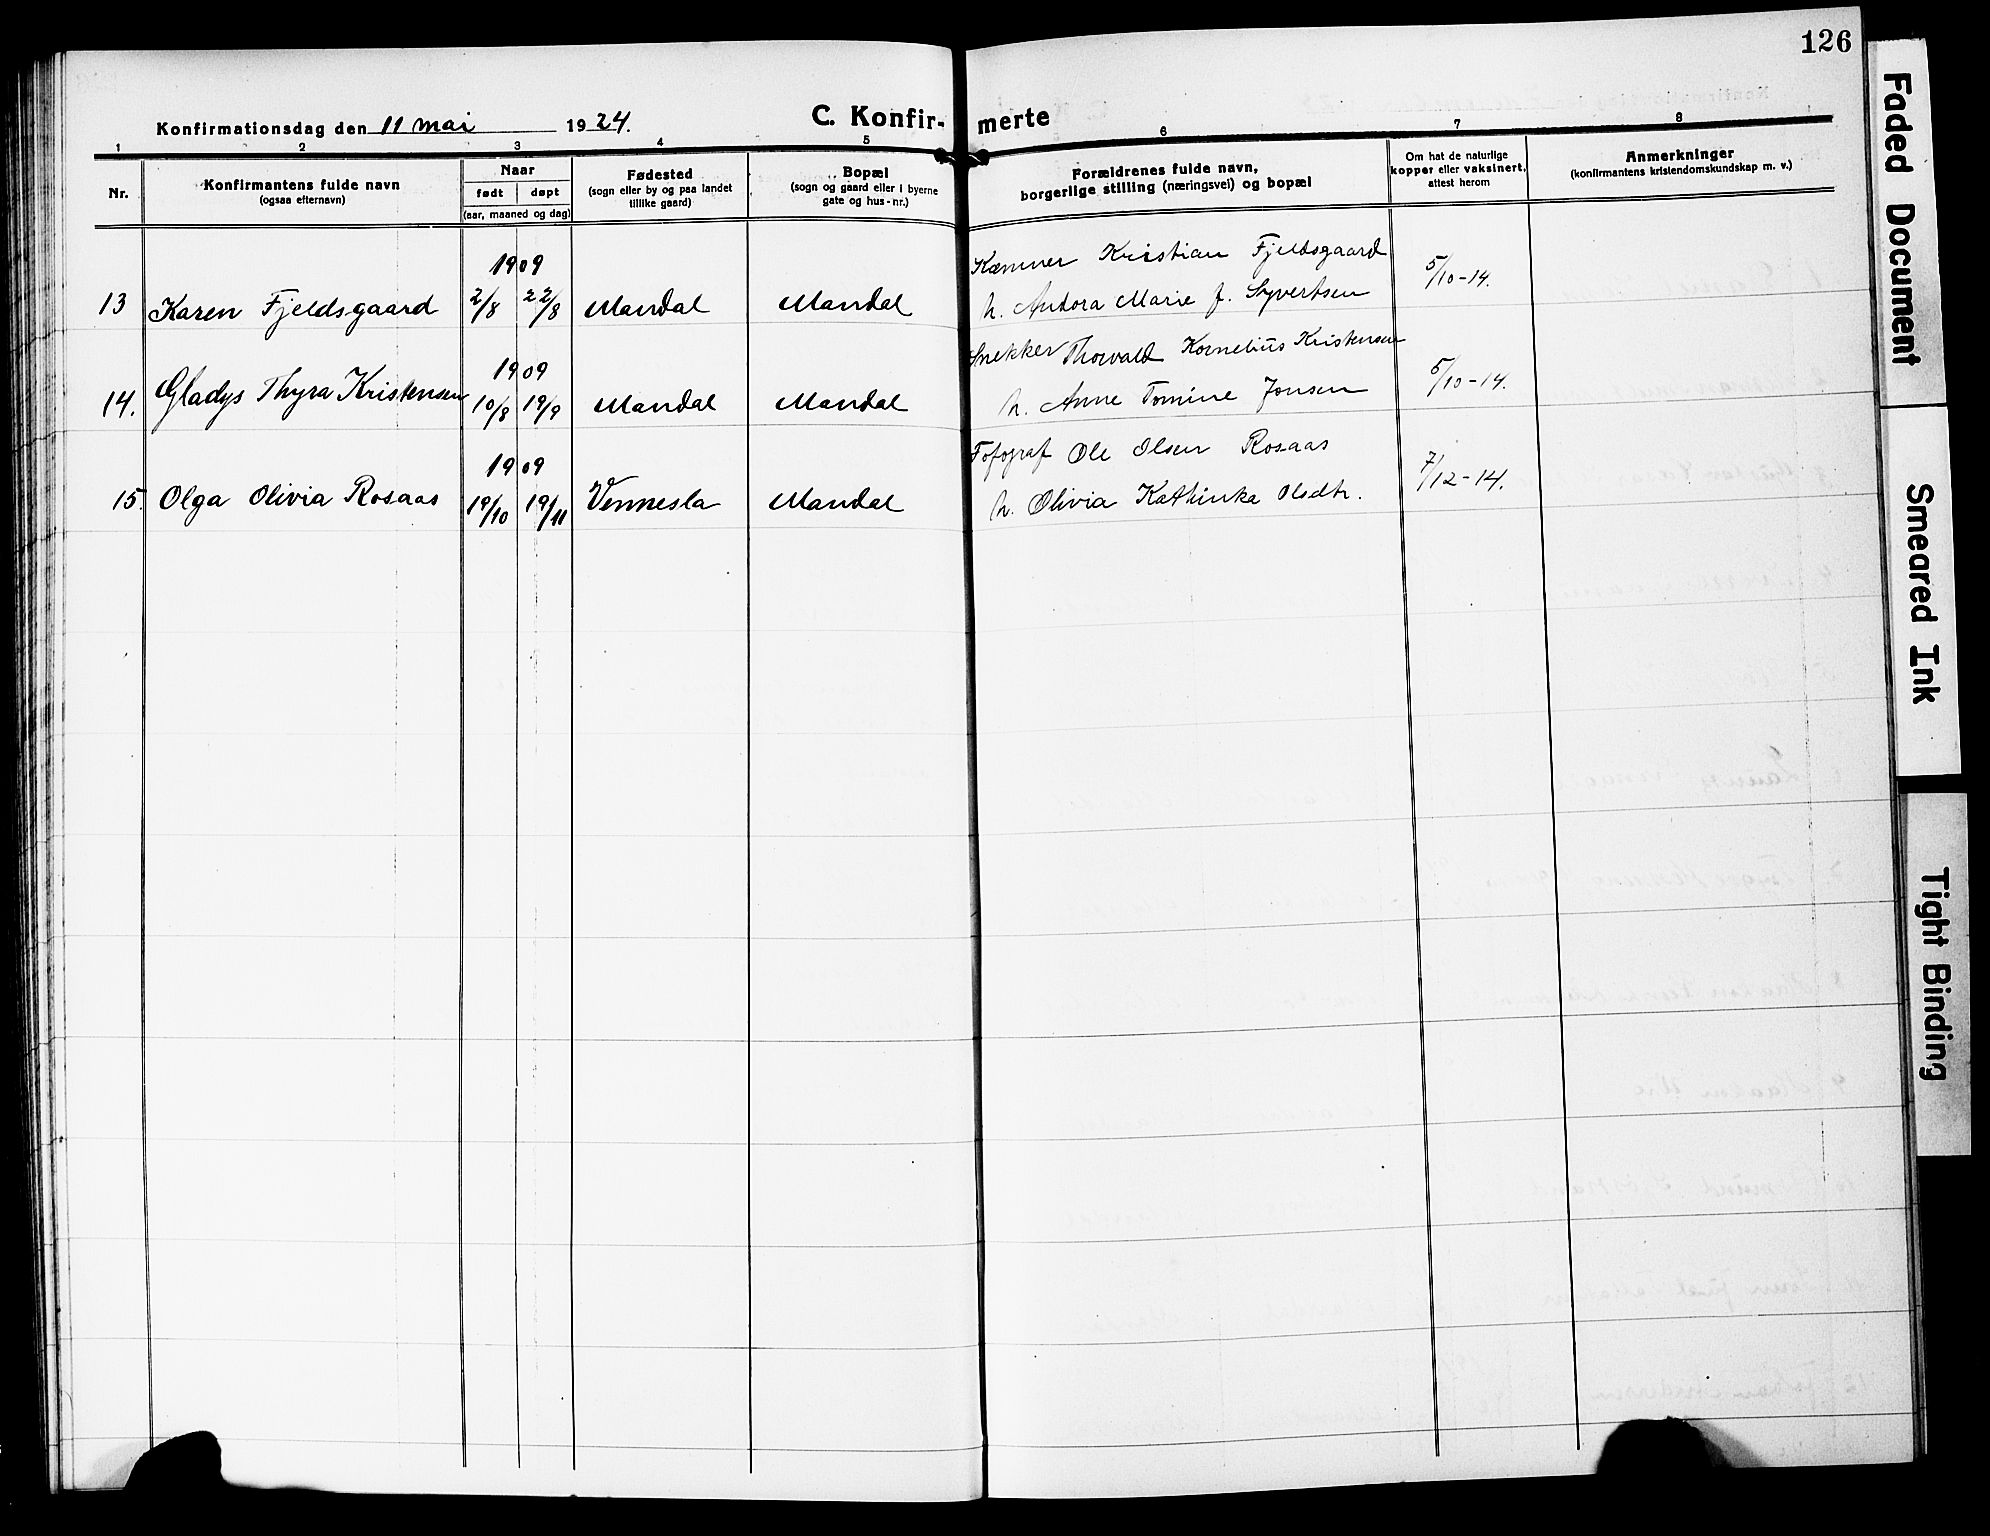 126
Konfirmationsdag den 11 mai 1924.
C. Konfir-merte
1 2 3 4 5 6 7 8
Nr.
Konfirmantens fulde navn
(ogsaa efternavn)
Naar
født døpt
(aar, maaned og dag)
Fødested
(sogn eller by og paa landet
tillike gaard)
Bopæl
(sogn og gaard eller i byerne
gate og hus-nr.)
Forældrenes fulde navn,
borgerlige stilling (næringsvei) og bopæl
Om hat de naturlige
kopper eller vaksinert,
attest herom
Anmerkninger
(konfirmantens kristendomskundskap m. v.)
1909 Kæmner Kristian Fjeldsgaard
13 Karen Fjeldsgaard 2/8 22/8 Mandal Mandal h. Andora Marie f. Syvertsen 5/10-14.
1909 Snekker Thorvald Kornelius Kristensen
14. Gladys Thyra Kristensen 10/8 19/9 Mandal Mandal h. Anne Tomine Jonsen 5/10-14.
1909 Fotograf Ole Olsen Rosaas
15. Olga Olivia Rosaas 19/10 19/11 Vennesla Mandal h. Olivia Kathinka Olsdtr. 7/12-14.
Faded Document
Smeared Ink
Tight Binding